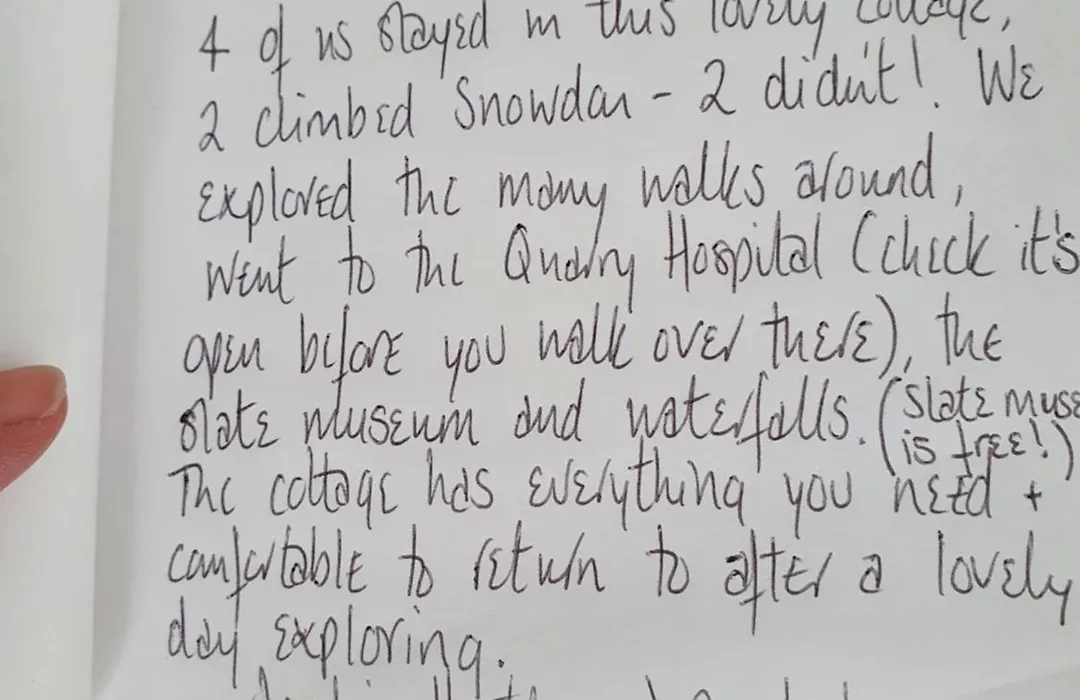 4 of us stayed in this lovely cottage,
2 climbed Snowdon - 2 didn't! We
explored the many walks around,
went to the Quarry Hospital (check it's
open before you walk over there), the
slate museum and waterfalls. (slate muse
is free!)
The cottage has everything you need +
comfortable to return to after a lovely
day exploring.